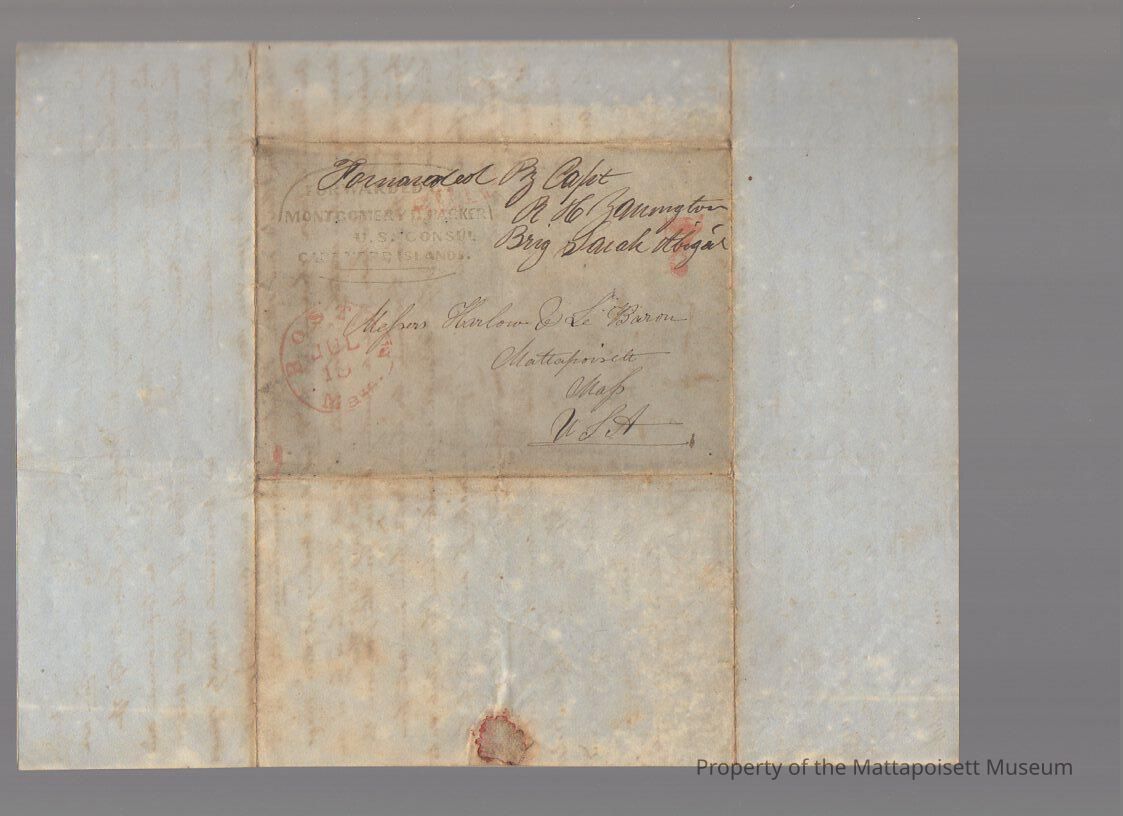 Forwarded By Capt
R H
Brig Sarah Abigal
FORWARDED
MONTGOMERY D. PARKER
U.S. CONSUL
CAPE VERD ISLANDS.
BOSTON
JUL
Mass.
Messrs Harlow & Le Baron
Mattapoisett
Mass
U S A
Property of the Mattapoisett Museum